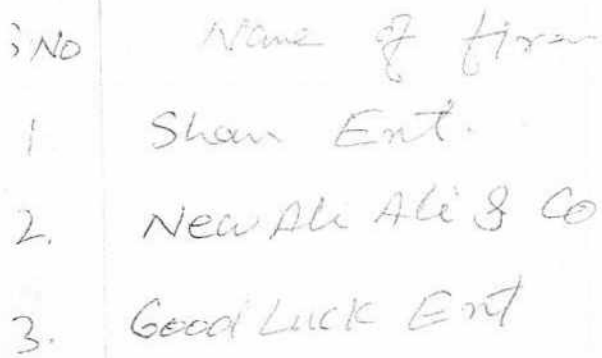 S No Name of firm
1 Shan Ent.
2. New Ali Ali & Co
3. Good Luck Ent